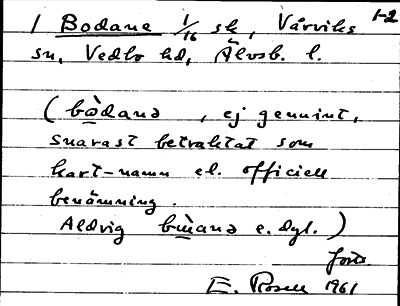 1-2
1 Bodane 1/16 sk, Vårviks
sn, Vedbo hd, Älvsb. l.
(bò̲danə , ej genuint,
snarast betraktat som
kart-namn el. officiell
benämning.
Aldrig bùanə e. dyl.)
forts.
E. Rosell 1961